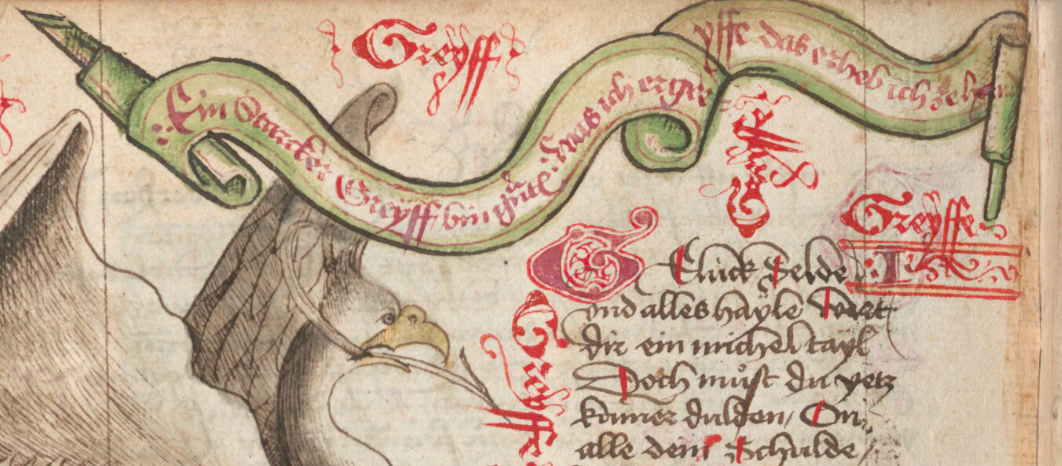 Greÿff
Ein Starcker Greÿff bin ich gůt: was ich ergre
yffe das erheb ich zehand
Greyffe
Greÿffe
Glück Selde
vnd alles haÿle wirt
dir ein michel tayl
Doch můst du yetz
kumer dulden / On
alle dein Schulde /
Greyffe